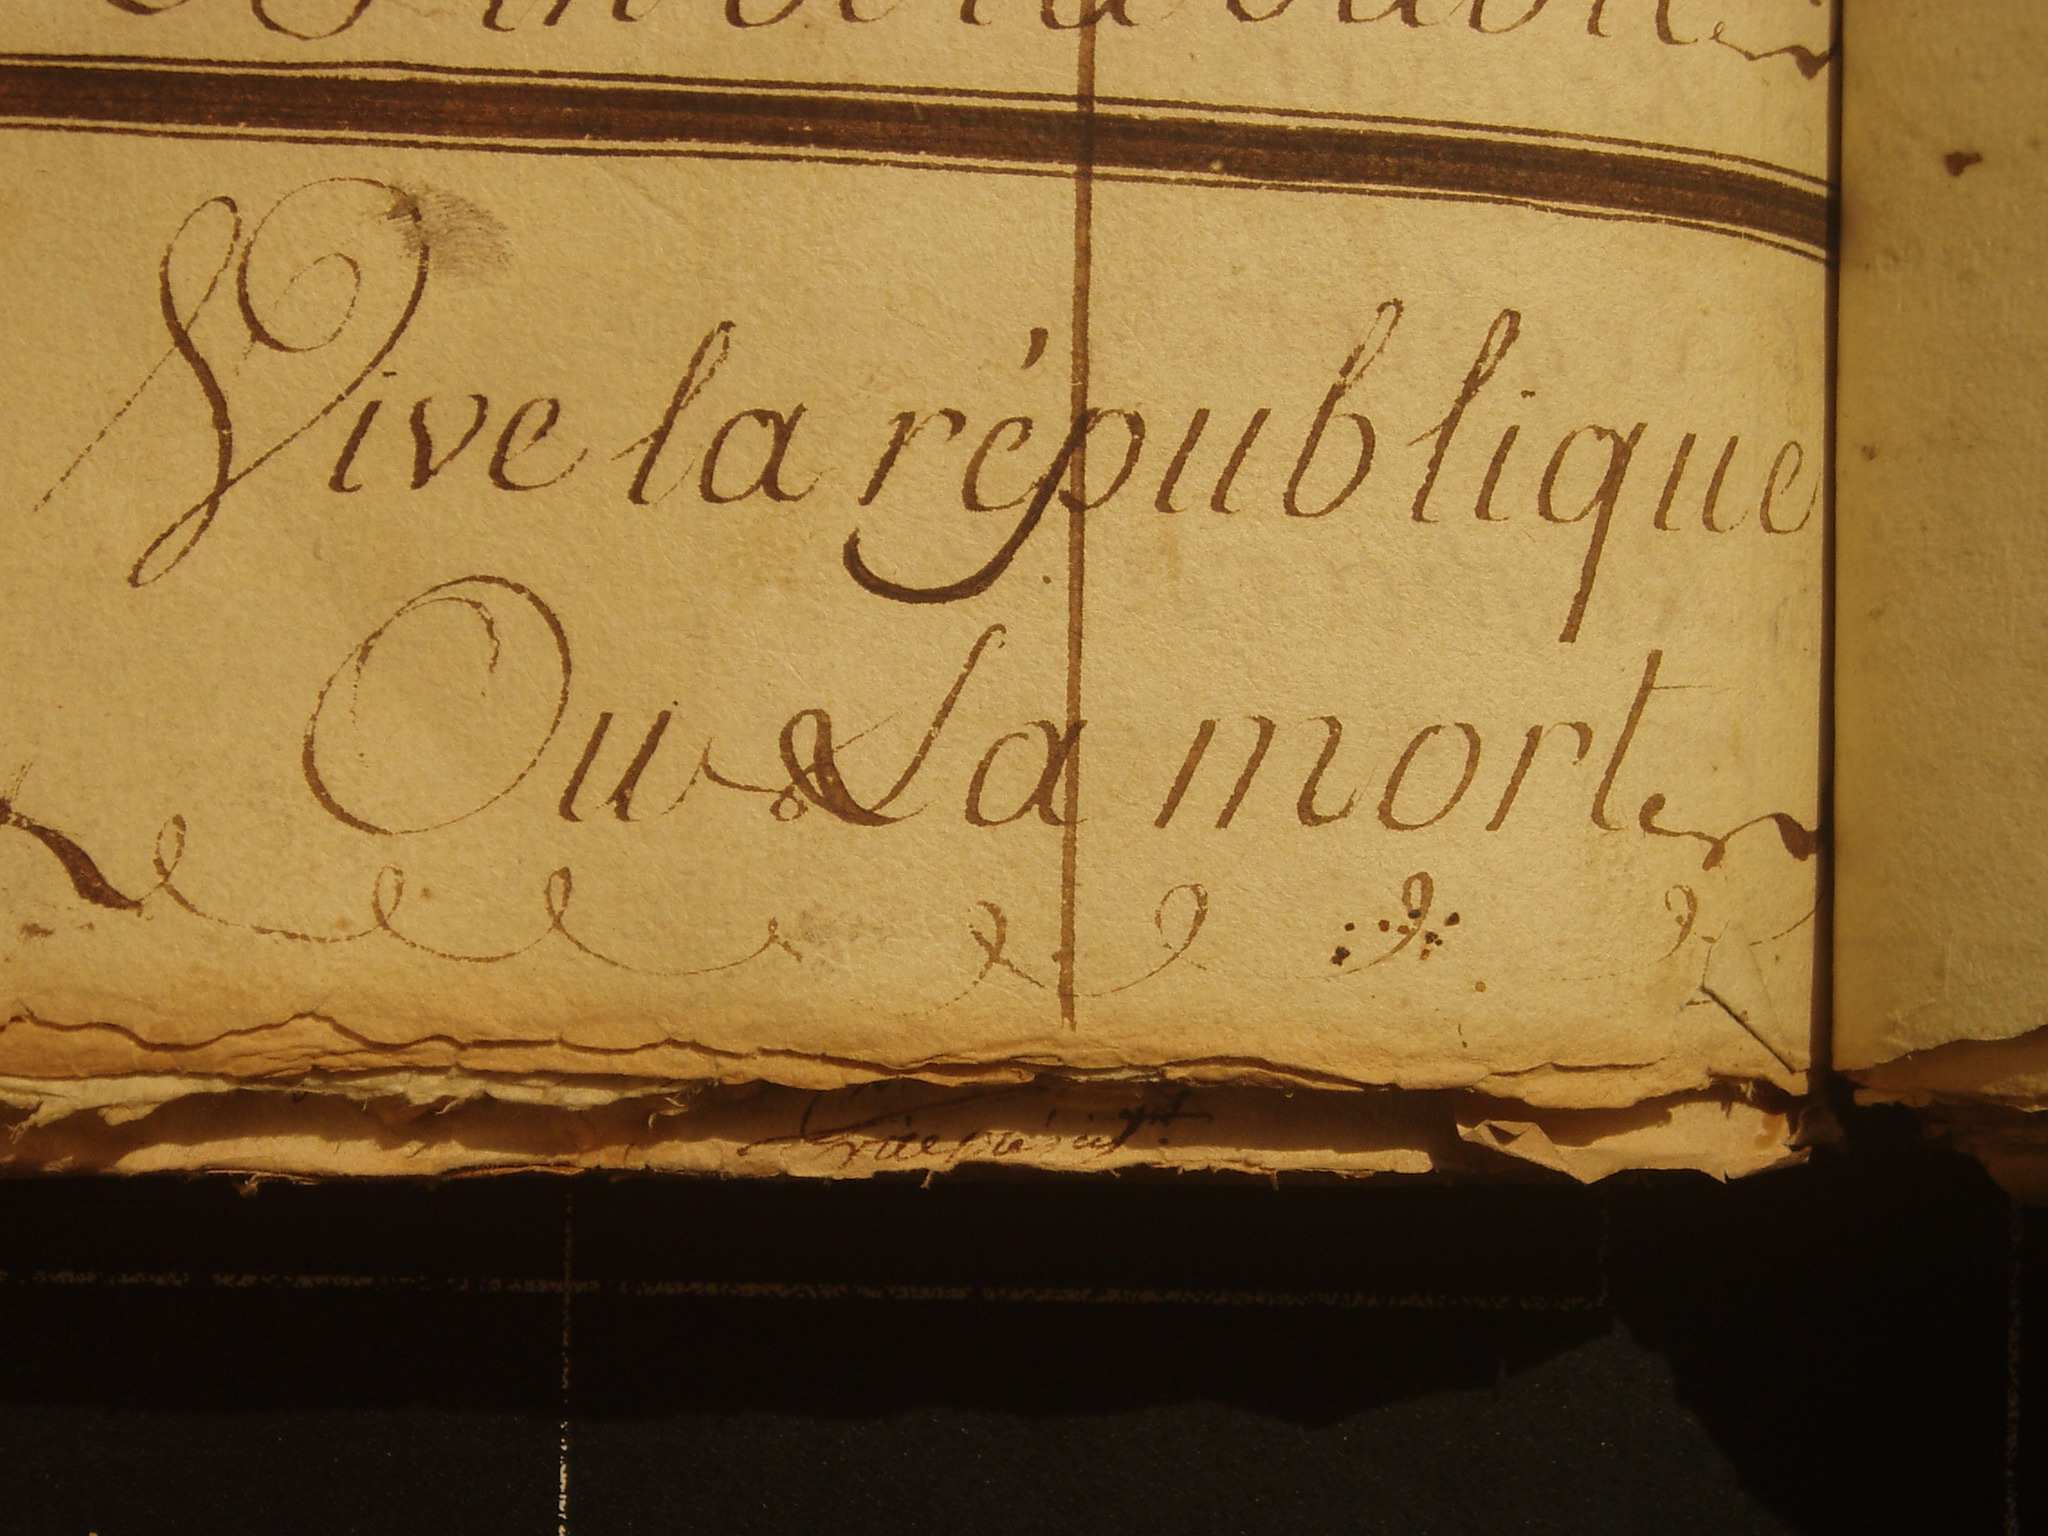 Vive la république
Ou La mort